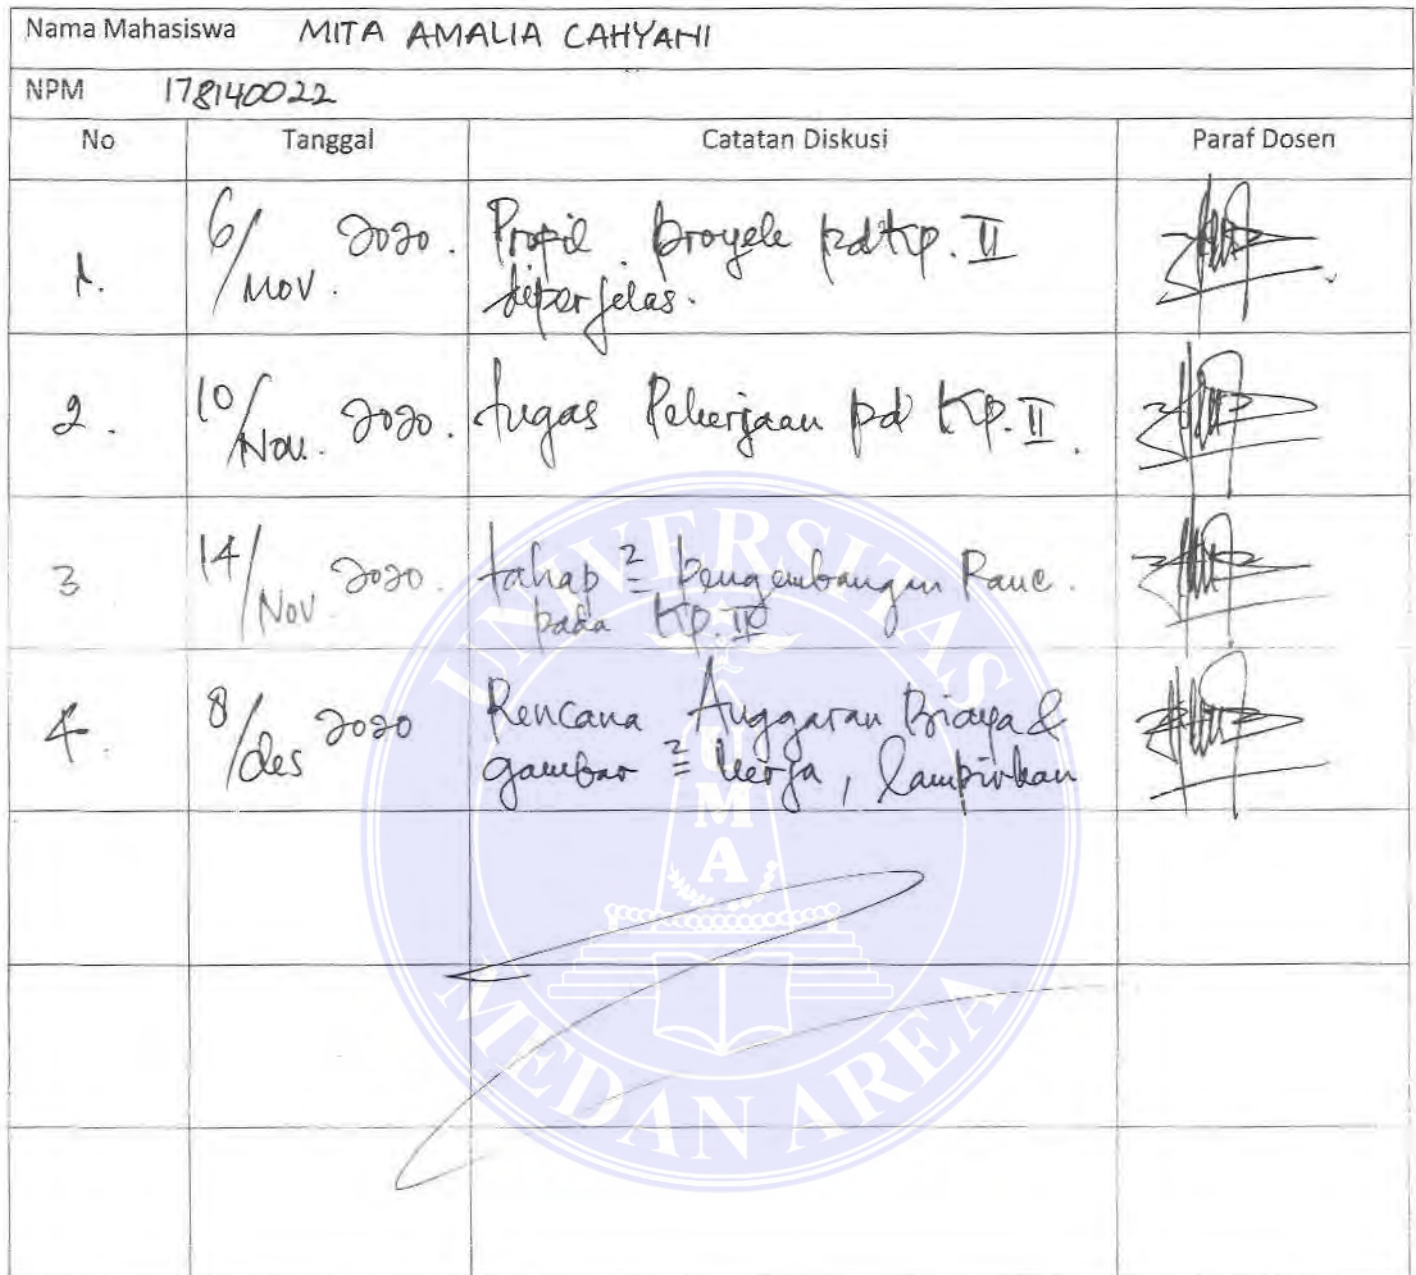 Nama Mahasiswa MITA AMALIA CAHYANI
NPM 178140022
No Tanggal Catatan Diskusi Paraf Dosen
1. 6/Nov. 2020. Propil proyek pd Kp. II
diperjelas.
2. 10/Nov. 2020. tugas Pekerjaan pd Kp. II.
3 14/Nov 2020. tahap² pengembangan Ranc.
pada Kp. II
4. 8/des 2020 Rencana Anggaran Biaya &
gambar² kerja, lampirkan
UNIVERSITAS
UMA
MEDAN AREA